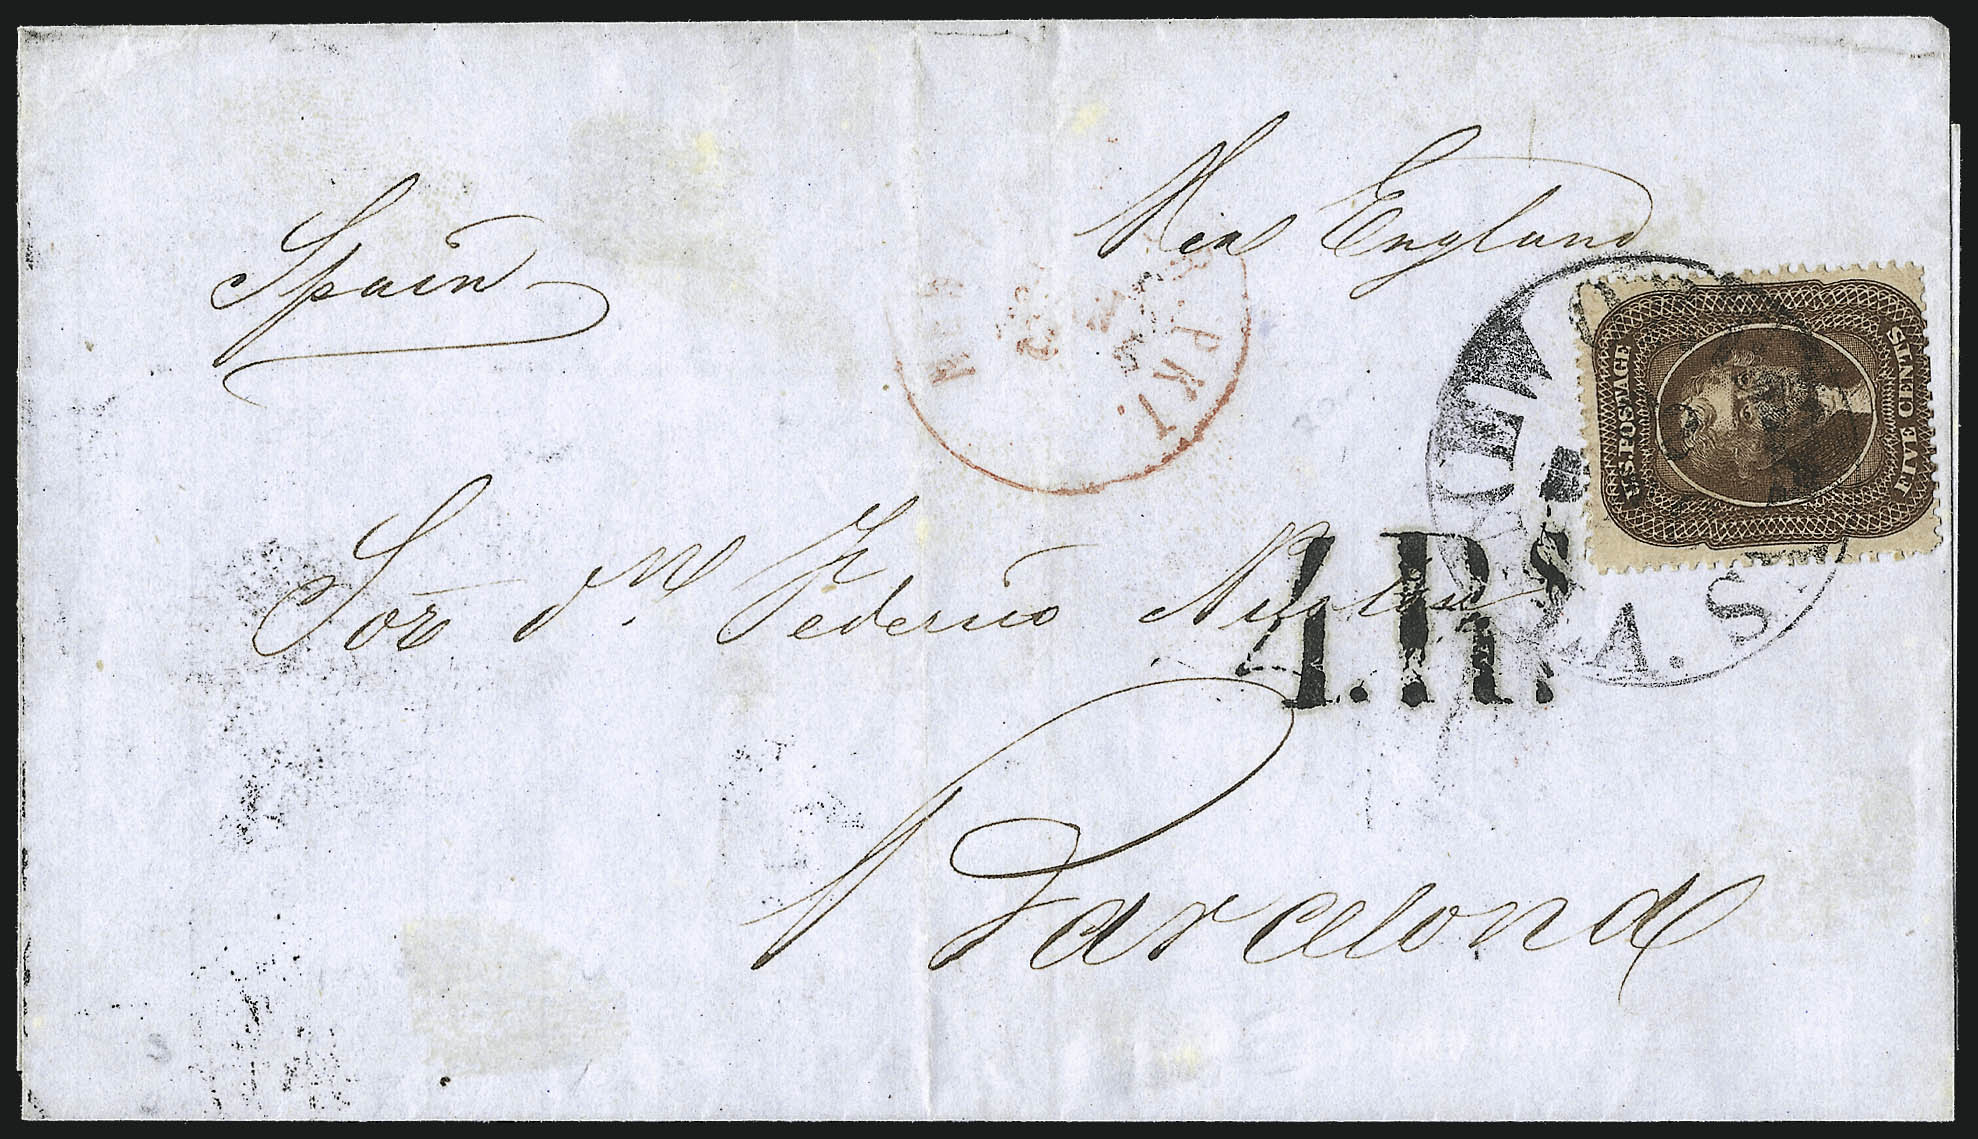 Spain
Via England
U.S. POSTAGE
FIVE CENTS
PKT.
Sor. dn. Federico
4.Rs.
LA. S
Barcelona